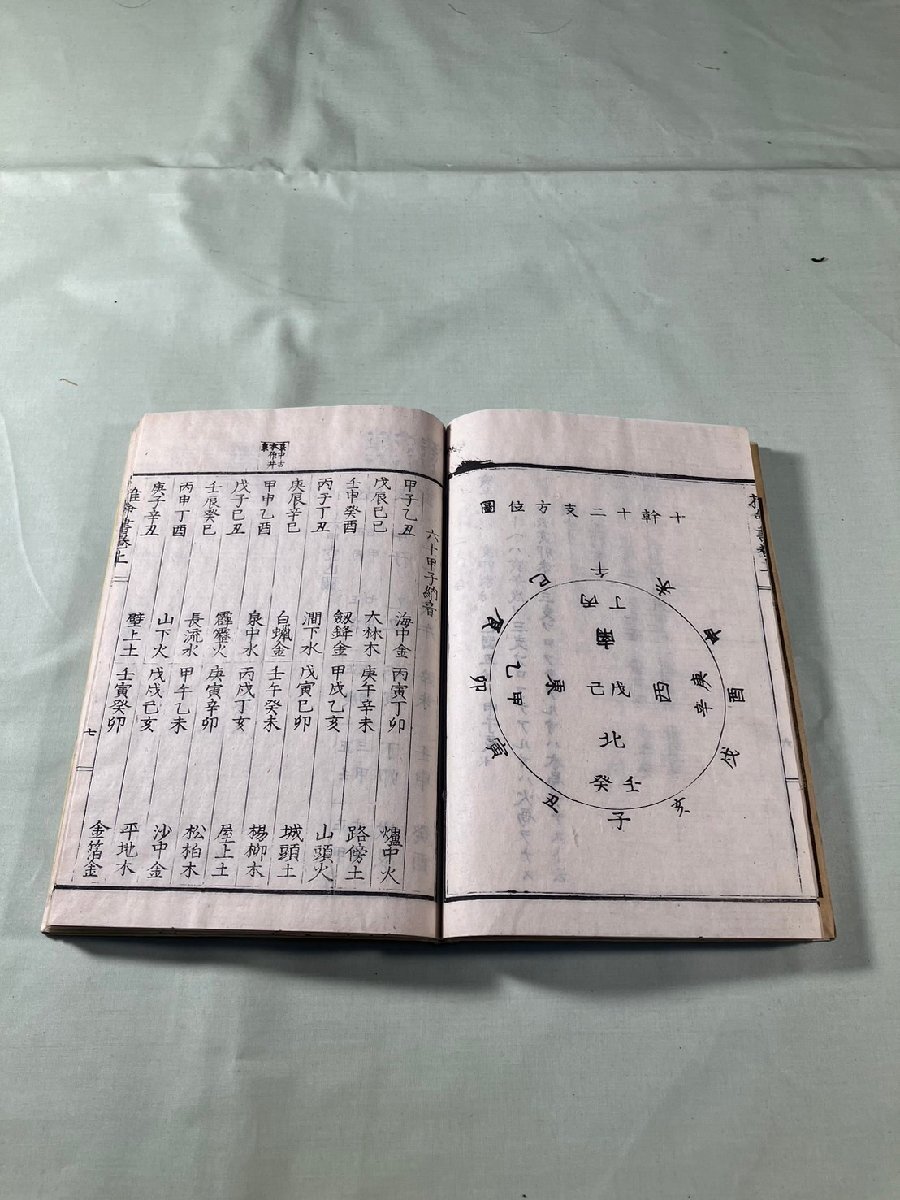 十幹十二支方位圖
午
未
申
酉
戌
亥
子
丑
寅
卯
辰
巳
丙丁
南
庚辛
西
戊己
東
甲乙
北
壬癸
六十甲子納音
甲子乙丑 海中金 丙寅丁卯 爐中火
戊辰己巳 大林木 庚午辛未 路傍土
壬申癸酉 劔鋒金 甲戌乙亥 山頭火
丙子丁丑 澗下水 戊寅己卯 城頭土
庚辰辛巳 白蝋金 壬午癸未 楊柳木
甲申乙酉 泉中水 丙戌丁亥 屋上土
戊子己丑 霹靂火 庚寅辛卯 松柏木
壬辰癸巳 長流水 甲午乙未 沙中金
丙申丁酉 山下火 戊戌己亥 平地木
庚子辛丑 壁上土 壬寅癸卯 金箔金
推命書卷上 七